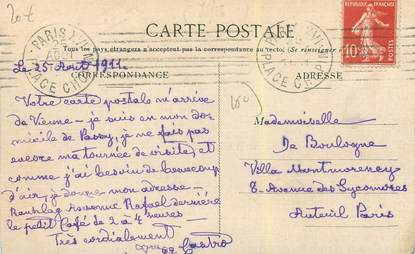 20t
CARTE POSTALE
Tous les pays étrangers n'acceptent pas la correspondance au recto. (Se renseigner
CORRESPONDANCE
ADRESSE
PARIS XVIII
PLACE
REPUBLIQUE FRANÇAISE
10
Le 25 Aout 1911.
Votre carte postale m'arrive
de Vienne - je suis en mon do=
micile de Passy, je ne fais pas
encore ma tournée de visites, et
comme j'ai besoin de beaucoup
d'air, je donne mon adresse -
Ranelagh Avenue Rafael derrière
le petit Café de 2 à 4 heures -
Très cordialement
Castro
Mademoiselle
De Boulogne
Villa Montmorency
8. Avenue des Sycomores
Auteuil Paris